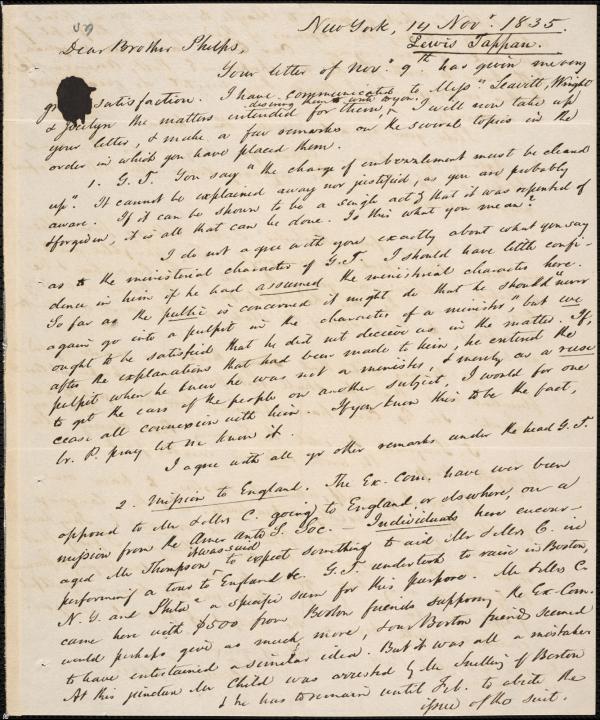 New York, 14 Novr. 1835.
Lewis Tappan.
Dear Brother Phelps,
Your letter of Novr. 9th has given me very
satisfaction. I have communicated to Messrs Leavitt, Wright
desiring them to write to you.
& Jocelyn the matters intended for them, & I will now take up
your letter, & make a few remarks on the several topics in the
order in which you have placed them.
1. G. T. You say "the charge of embezzlement must be cleared
up". It cannot be explained away nor justified, as you are probably
aware. If it can be shown to be a single act & that it was repented of
& forgiven, it is all that can be done. Is this what you mean?
I do not agree with you exactly about what you say
as to the ministerial character of G. T. I should have little confi-
dence in him if he had assumed the ministerial character here.
So far as the public is concerned it might do that he should "never
again go into a pulpit in the character of a minister", but we
ought to be satisfied that he did not deceive us in the matter. If,
after the explanations that had been made to him, he entered the
pulpit when he knew he was not a minister, & merely as a ruse
to get the ears of the people on another subject, I would for one
cease all connexion with him. If you know this to be the fact,
br. P. pray let me know it.
I agree with all yr other remarks under the head G. T.
2. Mission to England. The Ex. Com. have ever been
opposed to Mr & Mrs C. going to England, or elsewhere, on a
mission from the Amer. Anti S. Soc. — Individuals here encour-
aged Mr Thompson it was said to expect something to aid Mr & Mrs C. in
performing a tour to England &c. G. T. undertook to raise in Boston,
N. Y. and Phila a specific sum for this purpose. Mr & Mrs C.
came here with $500 from Boston friends supposing the Ex. Com.
would perhaps give as much more, & our Boston friends seemed
to have entertained a similar idea. But it was all a mistake.
At this juncture Mr Child was arrested by Mr Snelling of Boston
& he has to remain until Feb. to abide the
issue of the suit.